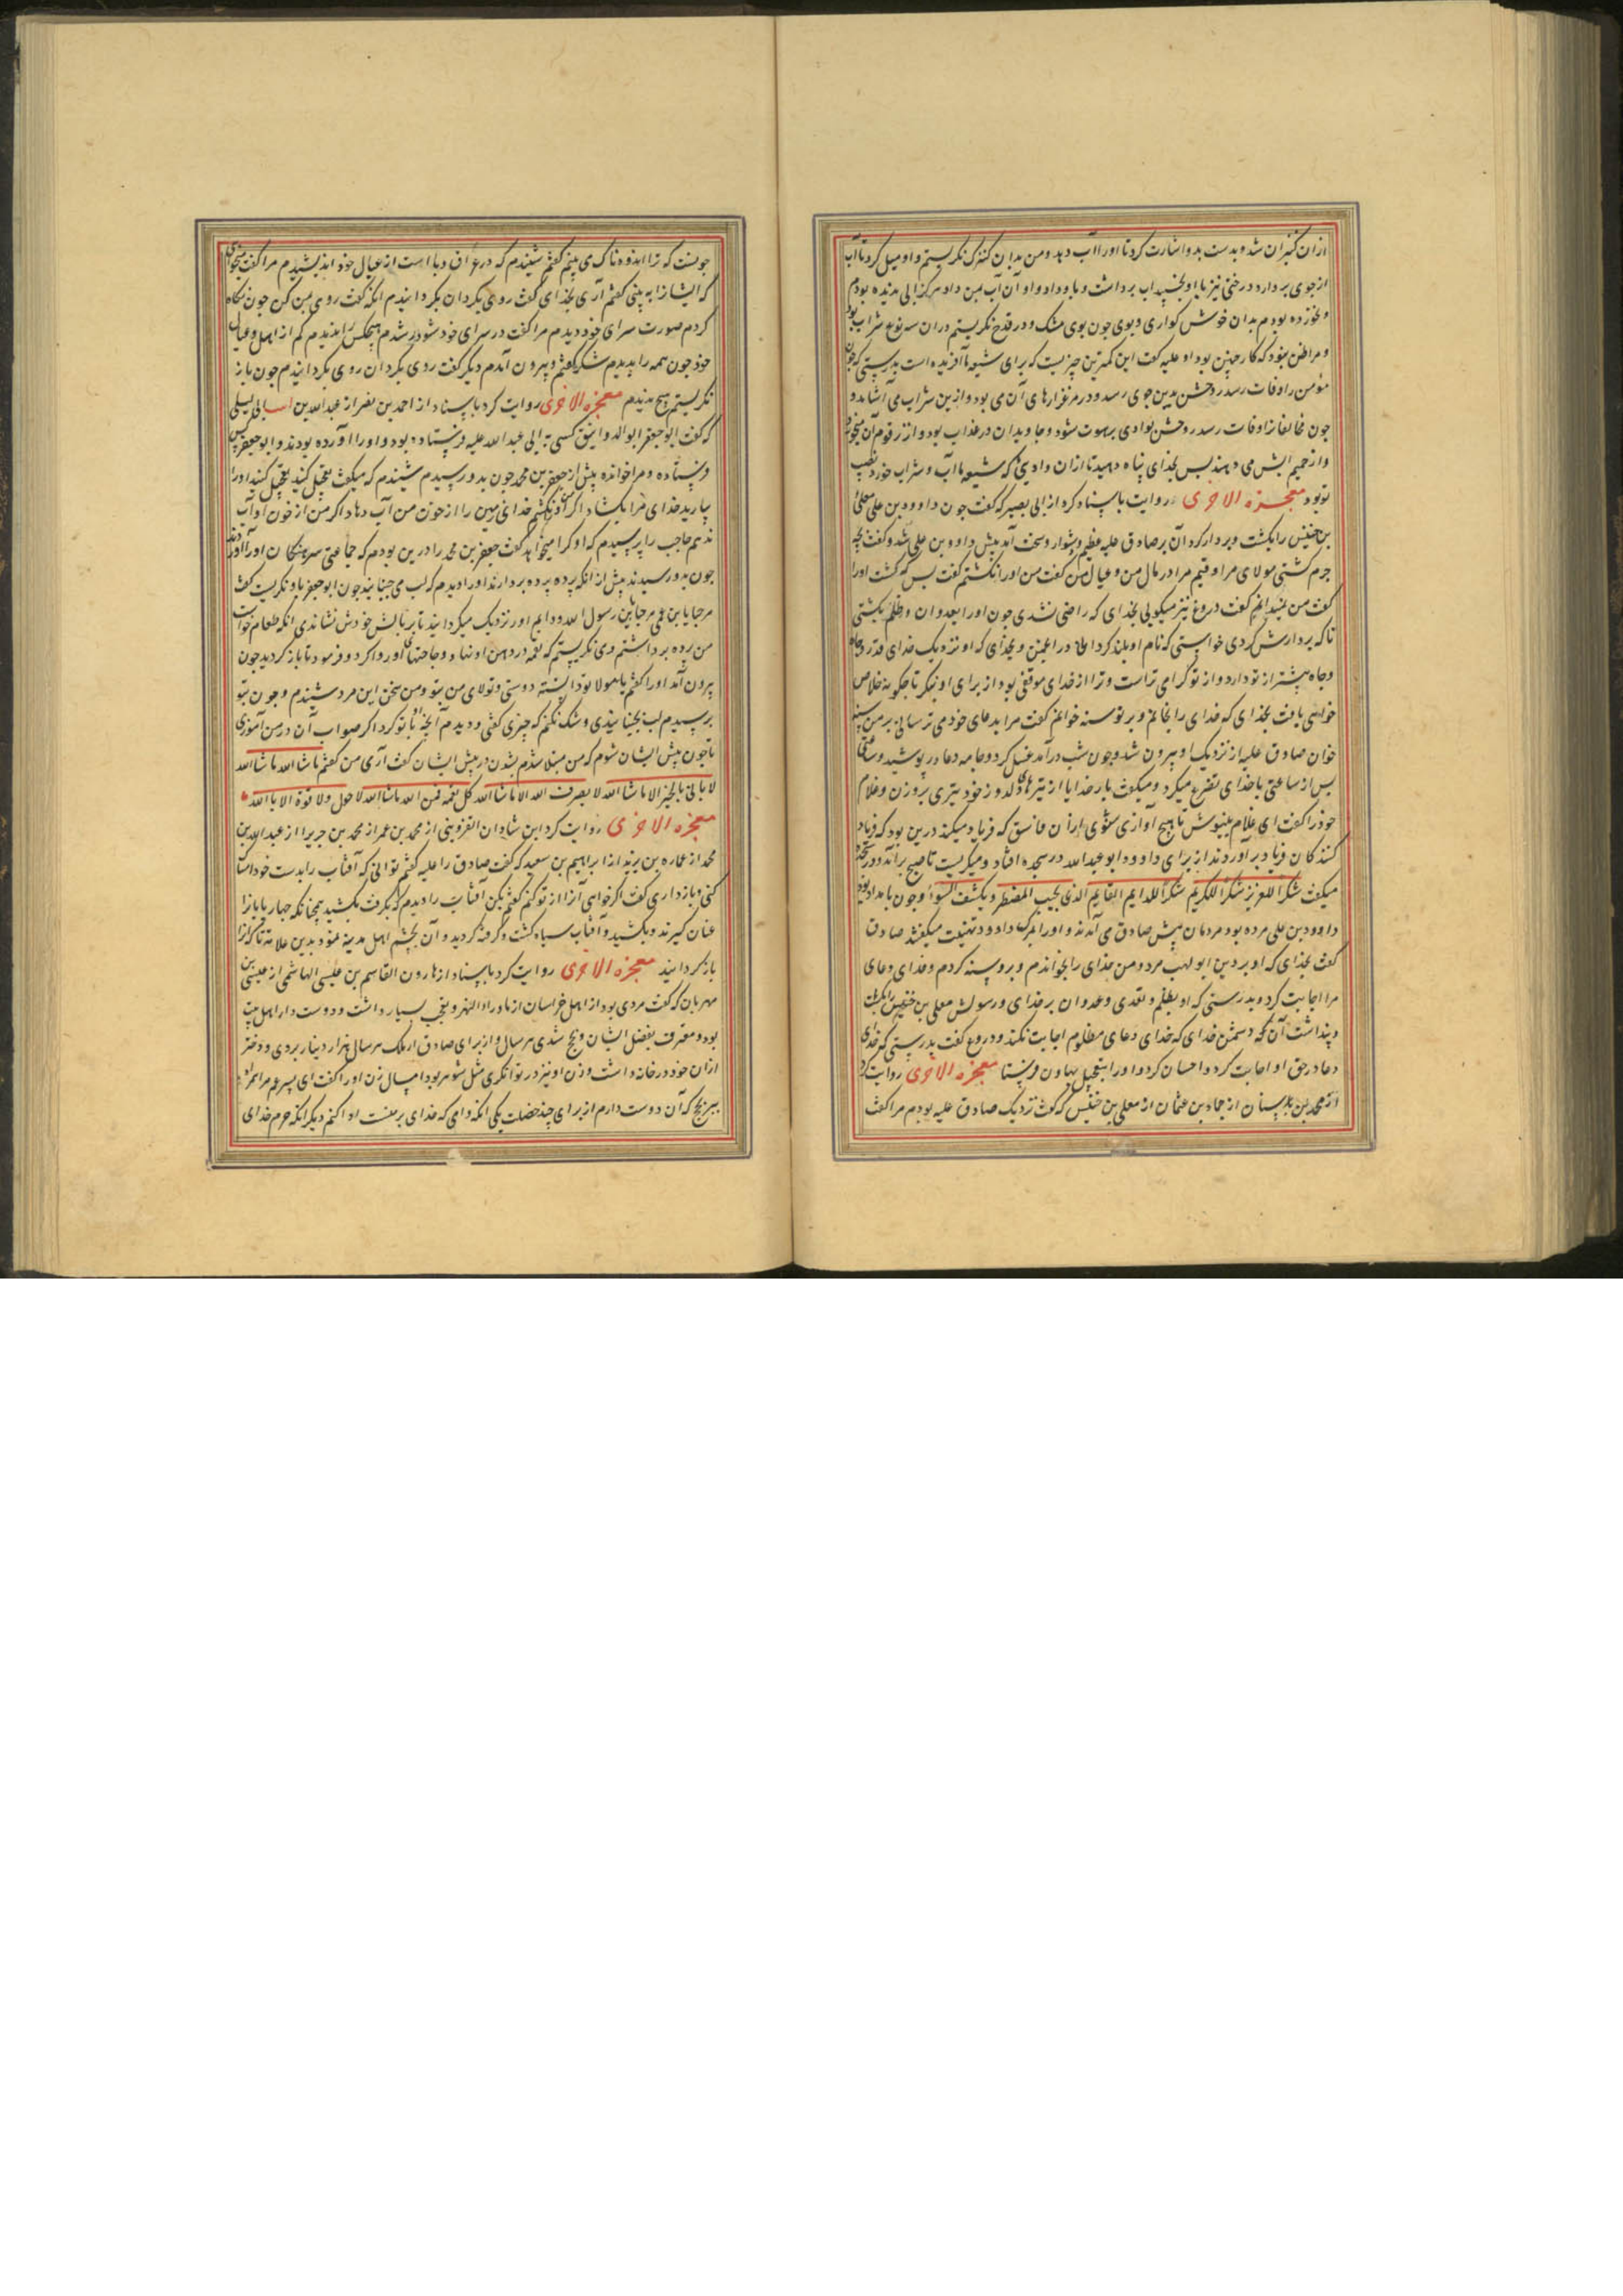 ازان کنیزان شد و بدست بدو اشارت کرد تا اورا آب دهد و من بدان کنیزک نگریستم و او میل کرد تا آب
از جوی بردارد درختی نیز با او بخسپید آب برداشت و باو داد و او آن آب بمن داد هرگز ابی ندیده بودم
و نخورده بودم بدان خوش کواری و بوی چون بوی مشک و در قدح نگریستم دران سه نوع شراب بود
و مرا ظن نبود که کار چنین بود او علیه گفت این کمترین چیزیست که برای شیعه ما آفریده است بدرستی که چون
مؤمن را وفات رسد روحش بدین جوی رسد و در مرغزارهای آن می بود و ازین شراب می آشامد و
چون مخالفانرا وفات رسد روحش بوادی برهوت شود و جاویدان در عذاب بود و از زقوم آن میخورد
و از حمیم ابش می دهند پس بخدای پناه دهید تا ازان وادی که شیعه ما آب و شراب خورد نصیب
تو بود معجزه الاخری روایت باسناد کرد از ابی بصیر که گفت چون داوود بن علی معلی
بن خنیس را بکشت و بردار کرد آن بر صادق علیه عظیم و دشوار و سخت آمد پیش داوود بن علی شد و گفت بچه
جرم کشتی مولای مرا و قیم مرا در مال من و عیال من گفت من اورا نکشتم گفت پس که کشت اورا
گفت من نمیدانم گفت دروغ نیز میکویی بخدای که راضی نشدی چون اورا بعدوان و ظلم بکشتی
تا که بردارش کردی خواستی که نام او بلند کردانی در اعین و بخدای که او نزدیک خدای قدر و جاه
و جاه بیشتر از تو دارد و از تو گرامی تراست و ترا از خدای موقفی بود از برای او بنگر تا چگونه خلاص
خواهی یافت بخدای که خدای را بخوانم و بر تو سنه خوانم گفت مرا بدعای خود می ترسانی بر من سنه
خوان صادق علیه از نزدیک او بیرون شد و چون شب درآمد غسل کرد و جامه دعا در پوشید و ساعتی
پس از ساعتی باخدای تضرع میکرد و میکفت بار خدایا از تیرهای دلدوز خود تیری برو زن و غلام
خود را گفت ای غلام بنیوش تا هیچ آوازی شنوی ازان فاسق که فریاد میکند درین بود که فریاد
کنندکان فریاد برآوردند از برای داوود ابو عبدالله در سجده افتاد و میکریست تا صبح برآمد و در سجده
میکفت شکرا للعزیز شکرا للکریم شکرا للدایم القایم الذی یجیب المضطر و یکشف السوا و چون بامداد بود
داوود بن علی مرده بود مردمان پیش صادق می آمدند و اورا بمرک داوود تهنیت میکفتند صادق
گفت بخدای که او بر دین ابو لهب مرد و من خدای را بخواندم و برو سنه کردم و خدای دعای
مرا اجابت کرد و بدرستی که او بظلم و تعدی و عدوان بر خدای و رسولش معلی بن خنیس را بکشت
و پنداشت آن که دشمن خدای که خدای دعای مظلوم اجابت نکند و دروغ گفت بدرستی که خدای
دعا در حق او اجابت کرد و احسان کرد و اورا بتعجیل بهاون فرستا معجزه الاخری روایت کرد
از محمد بن سنان از حماد بن عثمان از معلی بن خنیس که گفت نزدیک صادق علیه بودم مرا گفت
چونست که ترا اندوهناک می بینم گفتم شنیدم که در عراق وبا است از عیال خود اندیشیدم مرا گفت میخواهی
که ایشانرا به بینی گفتم آری بخدای گفت روی بکردان بکردانیدم انکه گفت روی بمن کن چون نکاه
کردم صورت سرای خود دیدم مرا گفت در سرای خود شو در شدم هیچکس را ندیدم کم از اهل و عیال
خود چون همه را بدیدم شکر گفتم و بیرون آمدم دیگر گفت روی بکردان روی بکردانیدم چون باز
نکریستم هیچ ندیدم معجزه الاخری روایت کرد باسناد از احمد بن نصر از عبدالله بن ابی لیلی
که گفت ابو جعفر ابو الدوانیق کسی به ابی عبدالله علیه فرستاده بود و اورا آورده بودند و ابو جعفر کس
فرستاده و مرا خوانده پیش از جعفر بن محمد چون بدو رسیدم شنیدم که میکفت بتعجیل کنید بتعجیل کنید اورا
بیارید خدای مرا بکشاد اکر من اورا نکشم خدای زمین را از خون من آب دهاد اکر من از خون او آب
ندهم حاجب را پرسیدم که او کرا میخواهد گفت جعفر بن محمد را درین بودم که جماعتی سرهنکان اورا آوردند
چون بدو رسیدند پیش از انکه پرده بردارند اورا دیدم که لب می جنبانید چون ابو جعفر باو نکریست گفت
مرحبا یا بن عمی مرحبا یا بن رسول الله و دایم اورا نزدیک میکردانید تا بر بالش خودش نشاندی انکه طعام خواست
من پرده برداشتم و می نکریستم که لقمه در دهن او نهاد و حاجتهای اورا روا کرد و فرمود تا باز کردید چون
بیرون آمد اورا گفتم یا مولا تو دانسته دوستی و تولای من بتو و من سخن این مرد شنیدم و چون بتو
برسیدم لب بجنبانیدی و شک نکنم که چیزی گفتی و دیدم آنچه او با تو کرد اکر صواب آن در من آموزی
تا چون پیش ایشان شوم که من مبتلا شدم بشدن در پیش ایشان گفت آری من گفتم ماشاالله ماشاالله
لا یاتی بالخیر الا ماشاالله لا یصرف الله الا ماشاالله کل نعمه فمن الله ماشاالله لا حول ولا قوة الا بالله
معجزه الاخری روایت کرد ابن شادان القزوینی از محمد بن عمر از محمد بن جریر از عبدالله بن
محمد از عماره بن یزید از ابراهیم بن سعید که گفت صادق را علیه گفتم توانی که آفتاب را بدست خود امساک
کنی و بازداری گفت اکر خواهی آنرا از تو کنم گفتم بکن آفتاب را دیدم که بکرفت بکشید چنانکه چهار پایانرا
عنان کیرند و بکشید و آفتاب سیاه کشت و گرفته کردید و آن بچشم اهل مدینه نمود بدین علامه تا که آنرا
باز کردانید معجزه الاخری روایت کرد باسناد از هارون القاسم بن عیسی الهاشمی از عیسی بن
مهربان که گفت مردی بود از اهل خراسان از ماوراءالنهر و نعمت بسیار داشت و دوست دار اهل بیت
بود و معترف بفضل ایشان و بحج شدی هر سال و از برای صادق از ملک هر سال هزار دینار بردی و دختر
ازان خود در خانه داشت و زن او نیز در توانکری مثل شوهر بود امسال زن اورا گفت ای پسر عم مرا همراه
ببر بحج که آن دوست دارم از برای چند خصلت یکی انکه دانی که خدای بر منست ادا کنم دیگر انکه حرم خدای